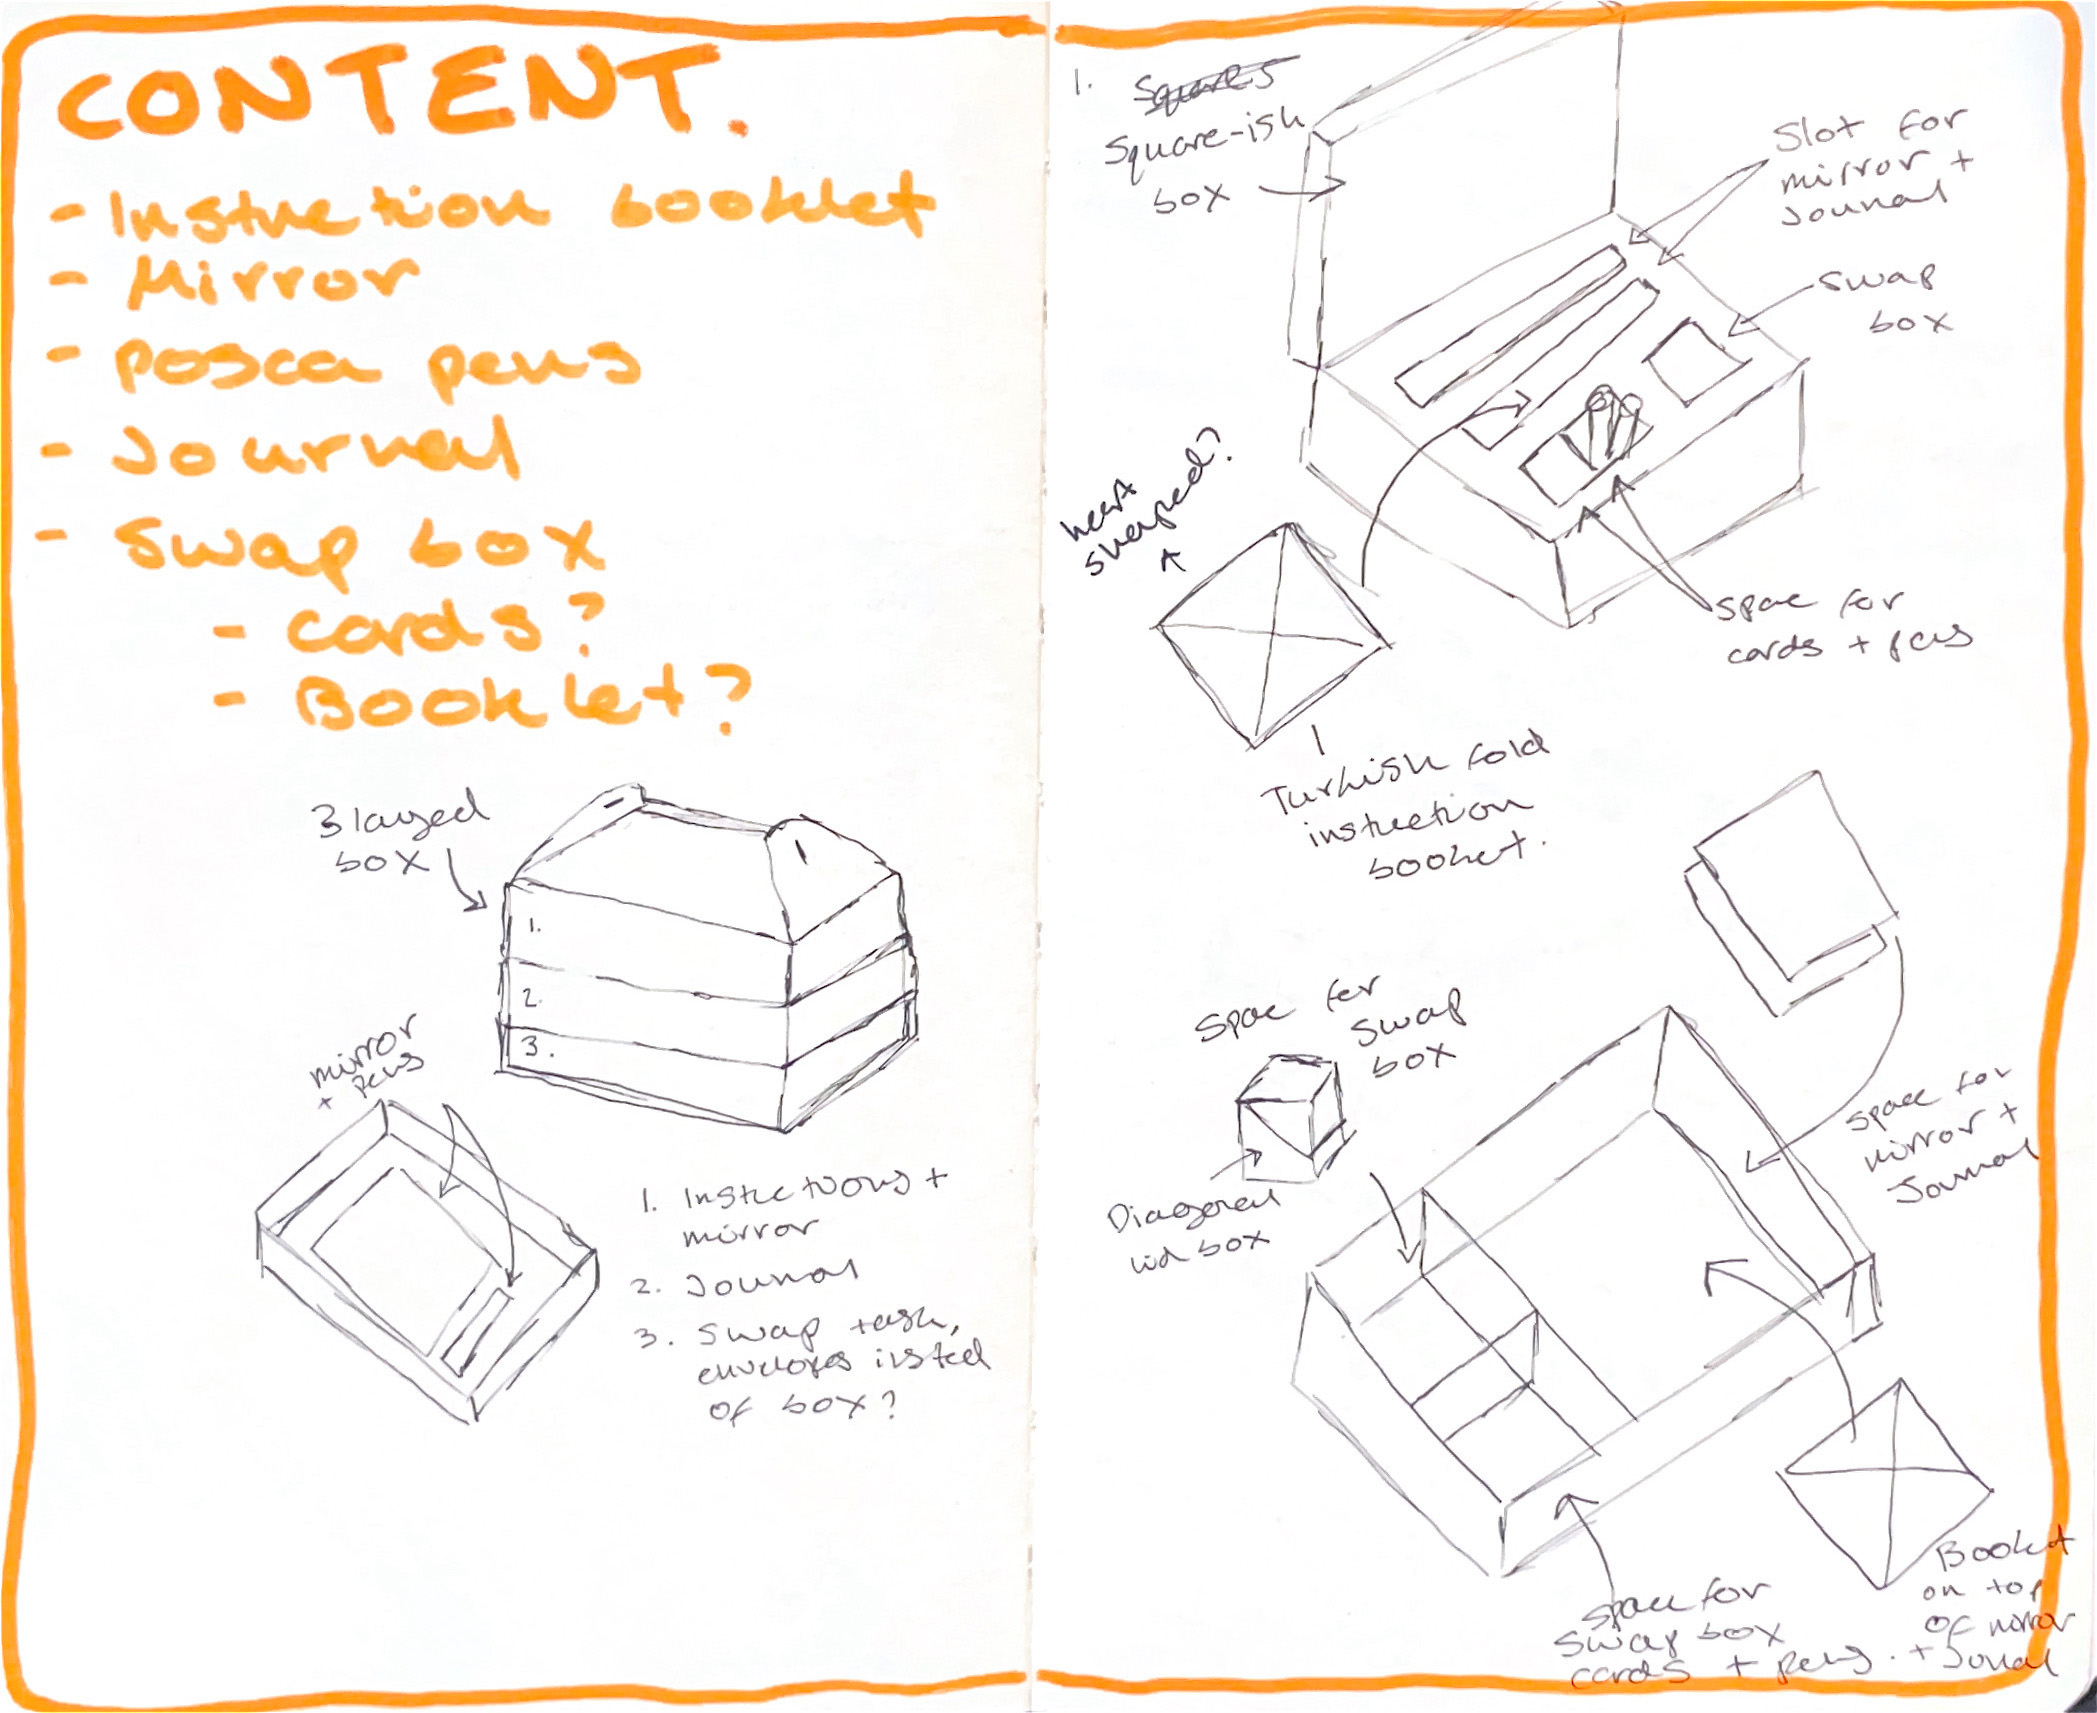 CONTENT.
- Instruction booklet
- Mirror
- Posca pens
- Journal
- Swap box
- cards?
- Booklet?
3 layed
box
1.
2.
3.
mirror
+ pens
1. Instructions +
mirror
2. Journal
3. Swap task,
envelopes insted
of box?
1. Squares
Square-ish
box
Slot for
mirror +
Journal
Swap
box
heart
shaped?
Space for
cards + pens
Turkish fold
instruction
booklet.
Space for
Swap
box
Diagonal
lid box
Space for
mirror +
Journal
Booklet
on top
of mirror
+ Journal
Space for
Swap box
cards + pens.